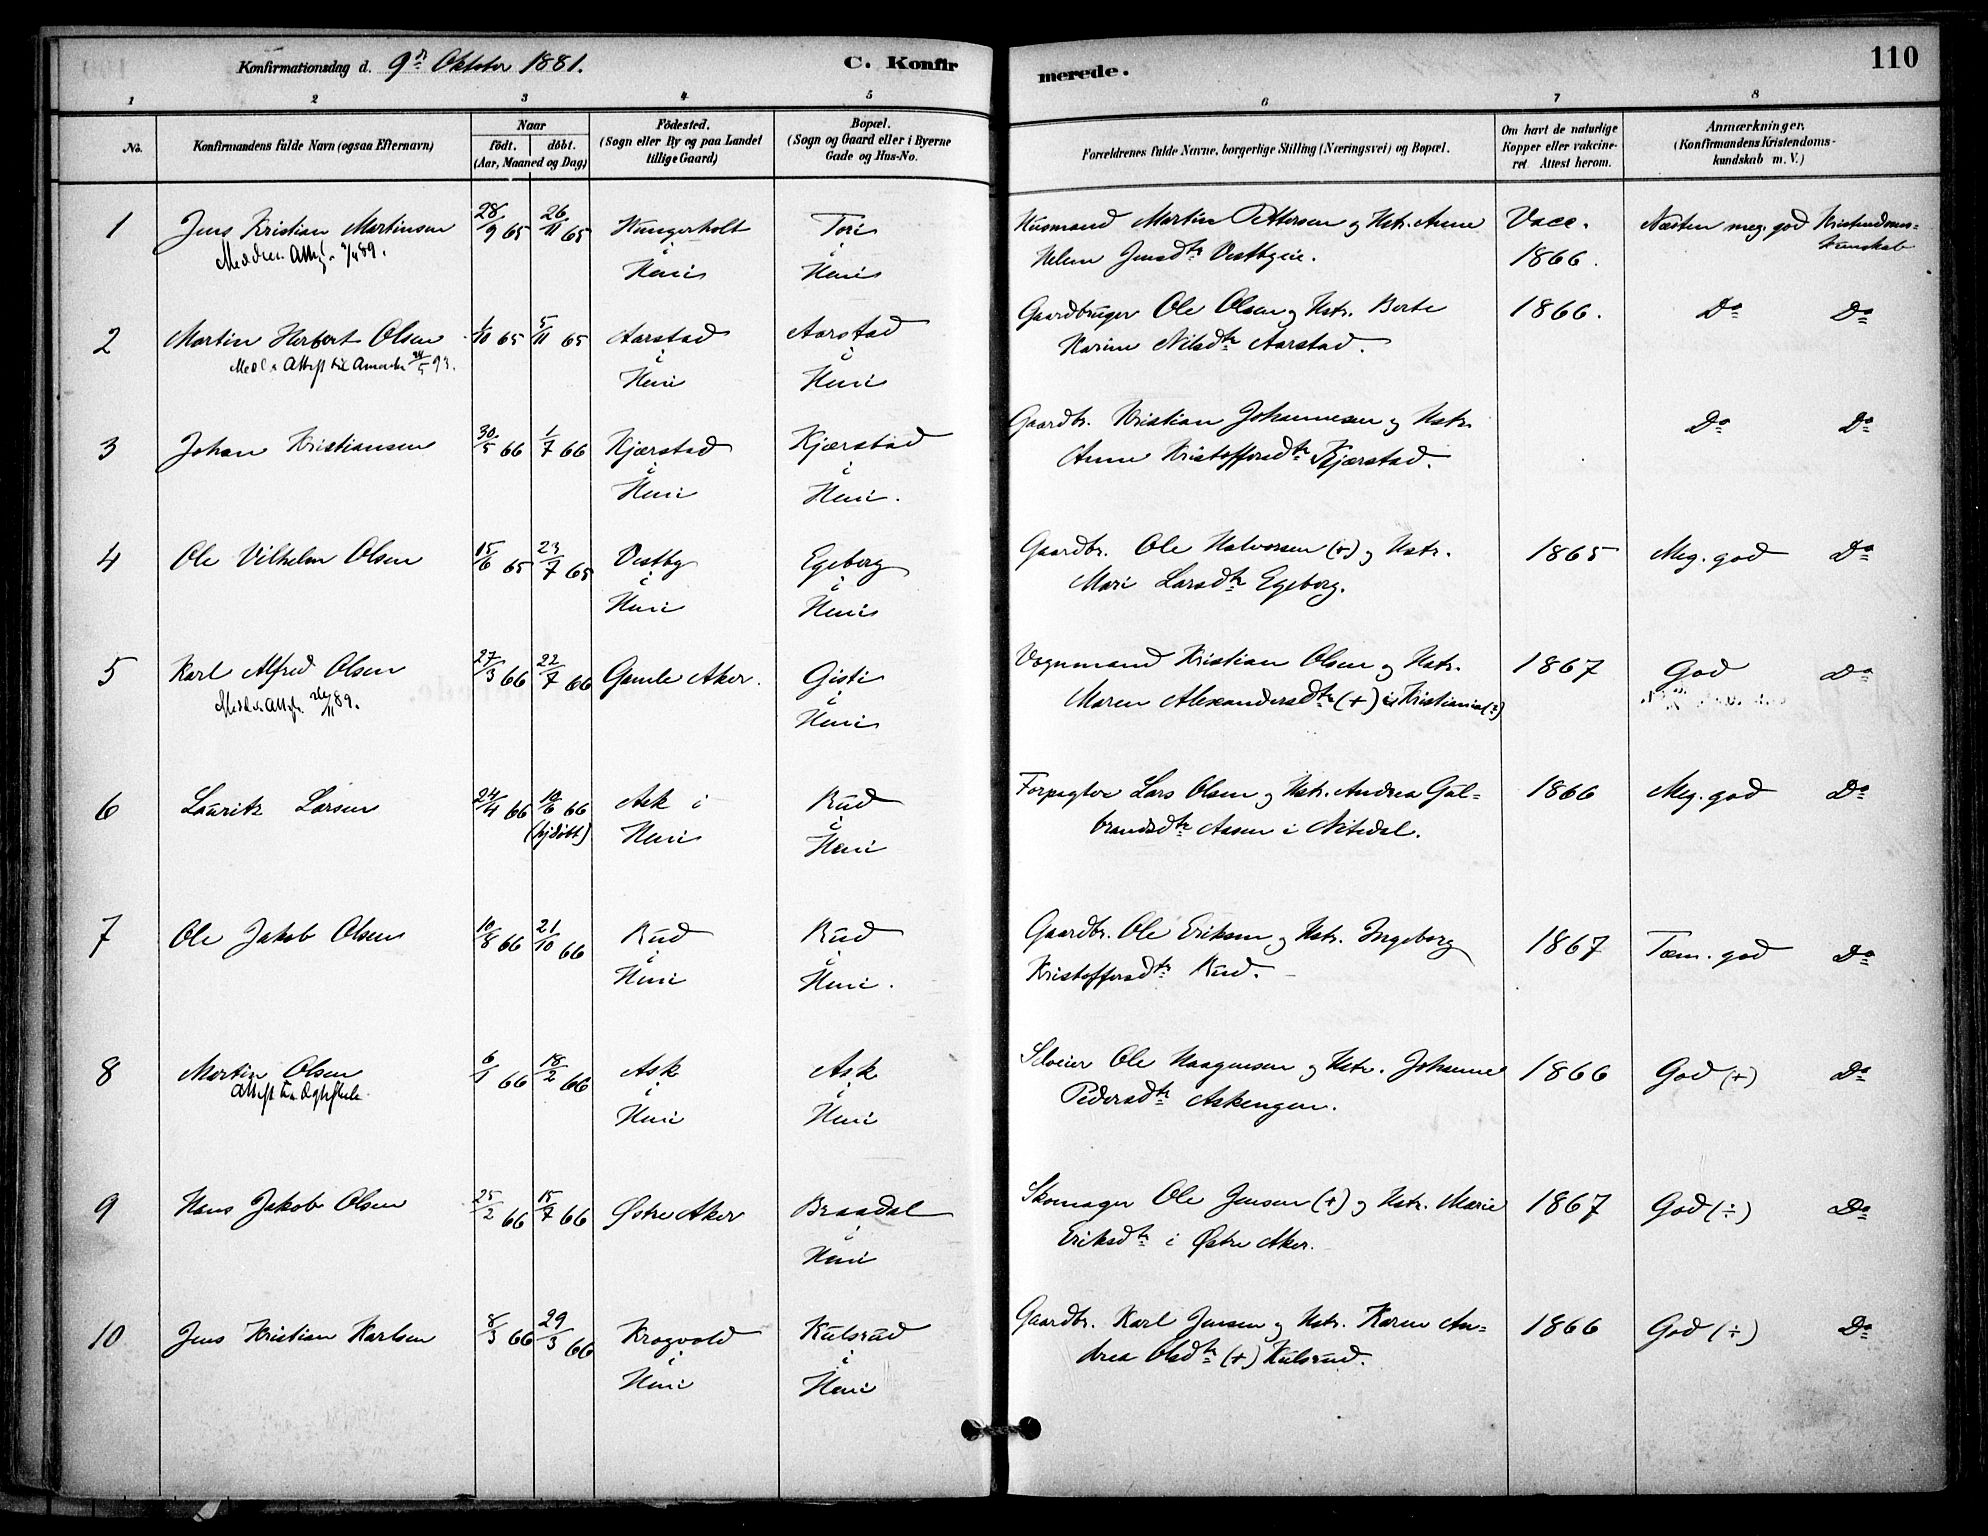 Konfirmationsdag d. 9de Oktober 1881.
C. Konfirmerede.
110
1 2 3 4 5 6 7 8
No.
Konfirmandens fulde Navn (ogsaa Efternavn)
Naar
födt. döbt.
(Aar, Maaned og Dag)
Födested.
(Sogn eller By og paa Landet
tillige Gaard)
Bopæl.
(Sogn og Gaard eller i Byerne
Gade og Hus-No.
Forældrenes fulde Navne, borgerlige Stilling (Næringsvei) og Bopæl.
Om havt de naturlige
Kopper eller vakcine-
ret Attest herom.
Anmærkninger.
(Konfirmandens Kristendoms-
kundskab m. V.)
1 Jens Kristian Martinsen 28/9 65 26/11 65 Hungerholt i Heni Tori i Heni
Husmand Martin Pettersen og Hstr. Anne Vacc. Næsten meg. god Kristendoms-
Helene Jensdtr Vestbyeie. 1866. kunskab
2 Martin Herbert Olsen 1/10 65 5/11 65 Aarstad i Heni Aarstad i Heni
Gaardbruger Ole Olsen og Hstr. Berte 1866. Do Do
Karine Nilsdtr Aarstad.
3 Johan Kristiansen 30/5 66 1/7 66 Kjærstad i Heni Kjærstad i Heni.
Gaardbr. Kristian Johannesen og Hstr. Do Do
Anne Kristoffersdtr Kjærstad.
4 Ole Vilhelm Olsen 15/6 65 23/7 65 Vestby i Heni Egeberg i Heni
Gaardbr. Ole Halvorsen (+) og Hstr. 1865 Meg. god Do
Mari Larsdtr Egeberg.
5 Karl Alfred Olsen 27/3 66 22/7 66 Gamle Aker. Gisti i Heni
Vognmand Kristian Olsen og Hstr. 1867 God Do
Maren Alexandersdtr (+) i Kristiania (÷)
6 Lauritz Larsen 24/4 66 10/6 66 Ask i Heni Rud i Heni
(hjdöbt)
Forpagter Lars Olsen og Hstr. Andrea Gul- 1866 Meg. god Do
brandsdtr Aasen i Nitedal.
7 Ole Jakob Olsen 10/8 66 21/10 66 Rud i Heni Rud i Heni.
Gaardbr. Ole Eriksen og Hstr. Ingeborg 1867 Tem. god Do
Kristoffersdtr Rud.
8 Martin Olsen 6/1 66 18/2 66 Ask i Heni Ask i Heni
Attest til Ægteskab.
Ole Haagensen og Hstr. Johanne 1866 God (+) Do
Pedersdtr Askengen.
9 Hans Jakob Olsen 25/2 66 15/7 66 Østre Aker Braadal i Heni
Skomager Ole Jensen (+) og Hstr. Marie 1867 God (÷) Do
Eriksdtr i Østre Aker.
10 Jens Kristian Karlsen 8/3 66 29/3 66 Krogvold i Heni Kulsrud i Heni
Gaardbr. Karl Jensen og Hstr. Karen An- 1866 God (÷) Do
drea Olsdtr (+) Kulsrud.